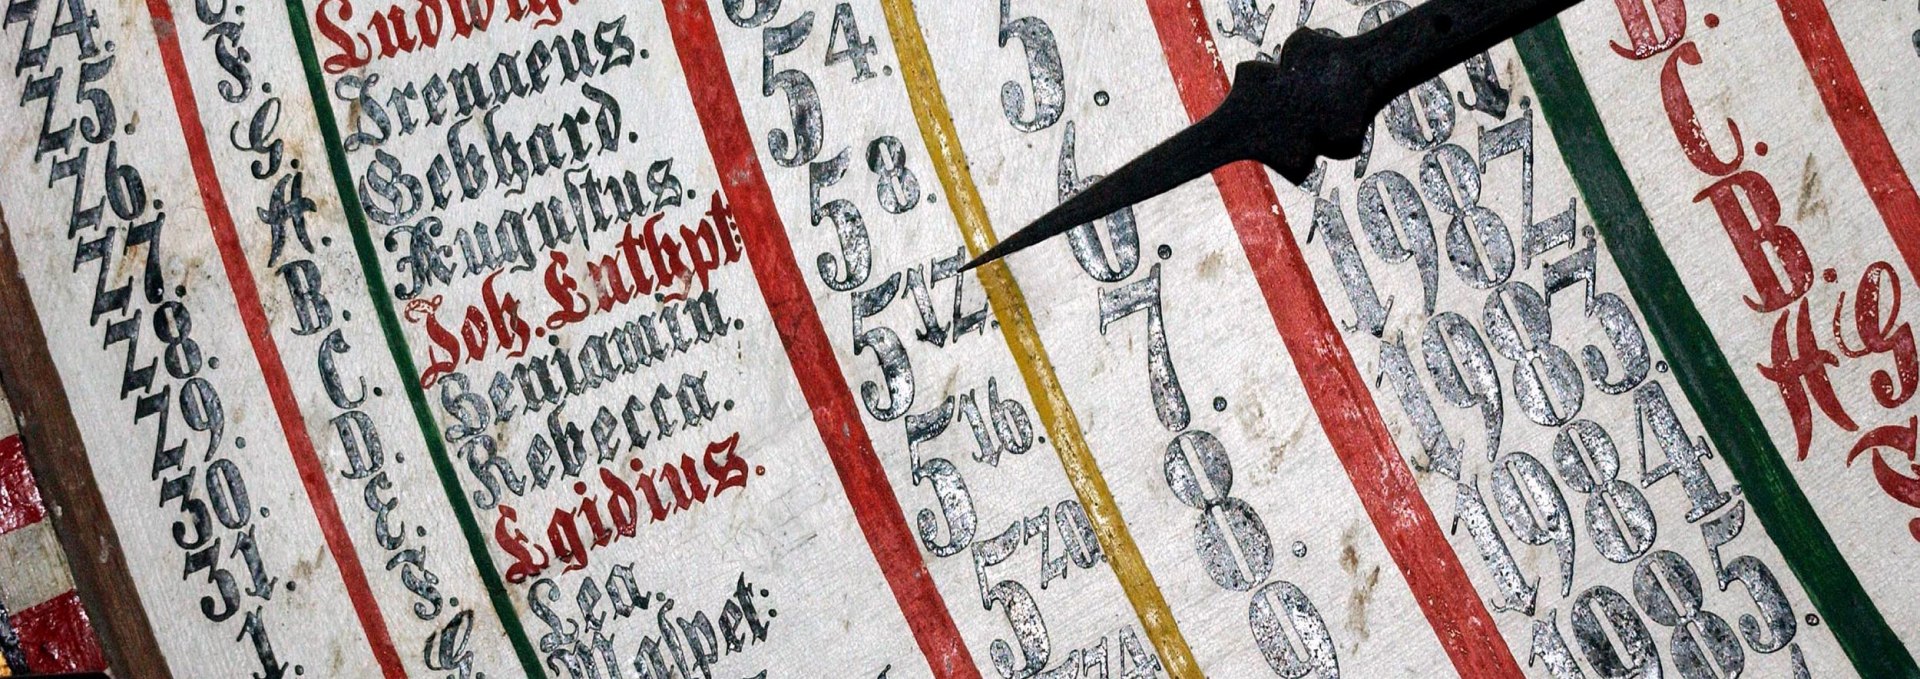 24.
25.
26.
27.
28.
29.
30.
31.
1.
F.
G.
A.
B.
C.
D.
E.
F.
G.
Ludwig.
Irenaeus.
Gebhard.
Augustus.
Joh. Enthpt:
Beniamin.
Rebecca.
Egidius.
Lea.
5 4.
5 8.
5 12.
5 16.
5 20.
24
5.
6.
7.
8.
9
1981.
1982.
1983.
1984.
1985.
D.
C.
B.
A G